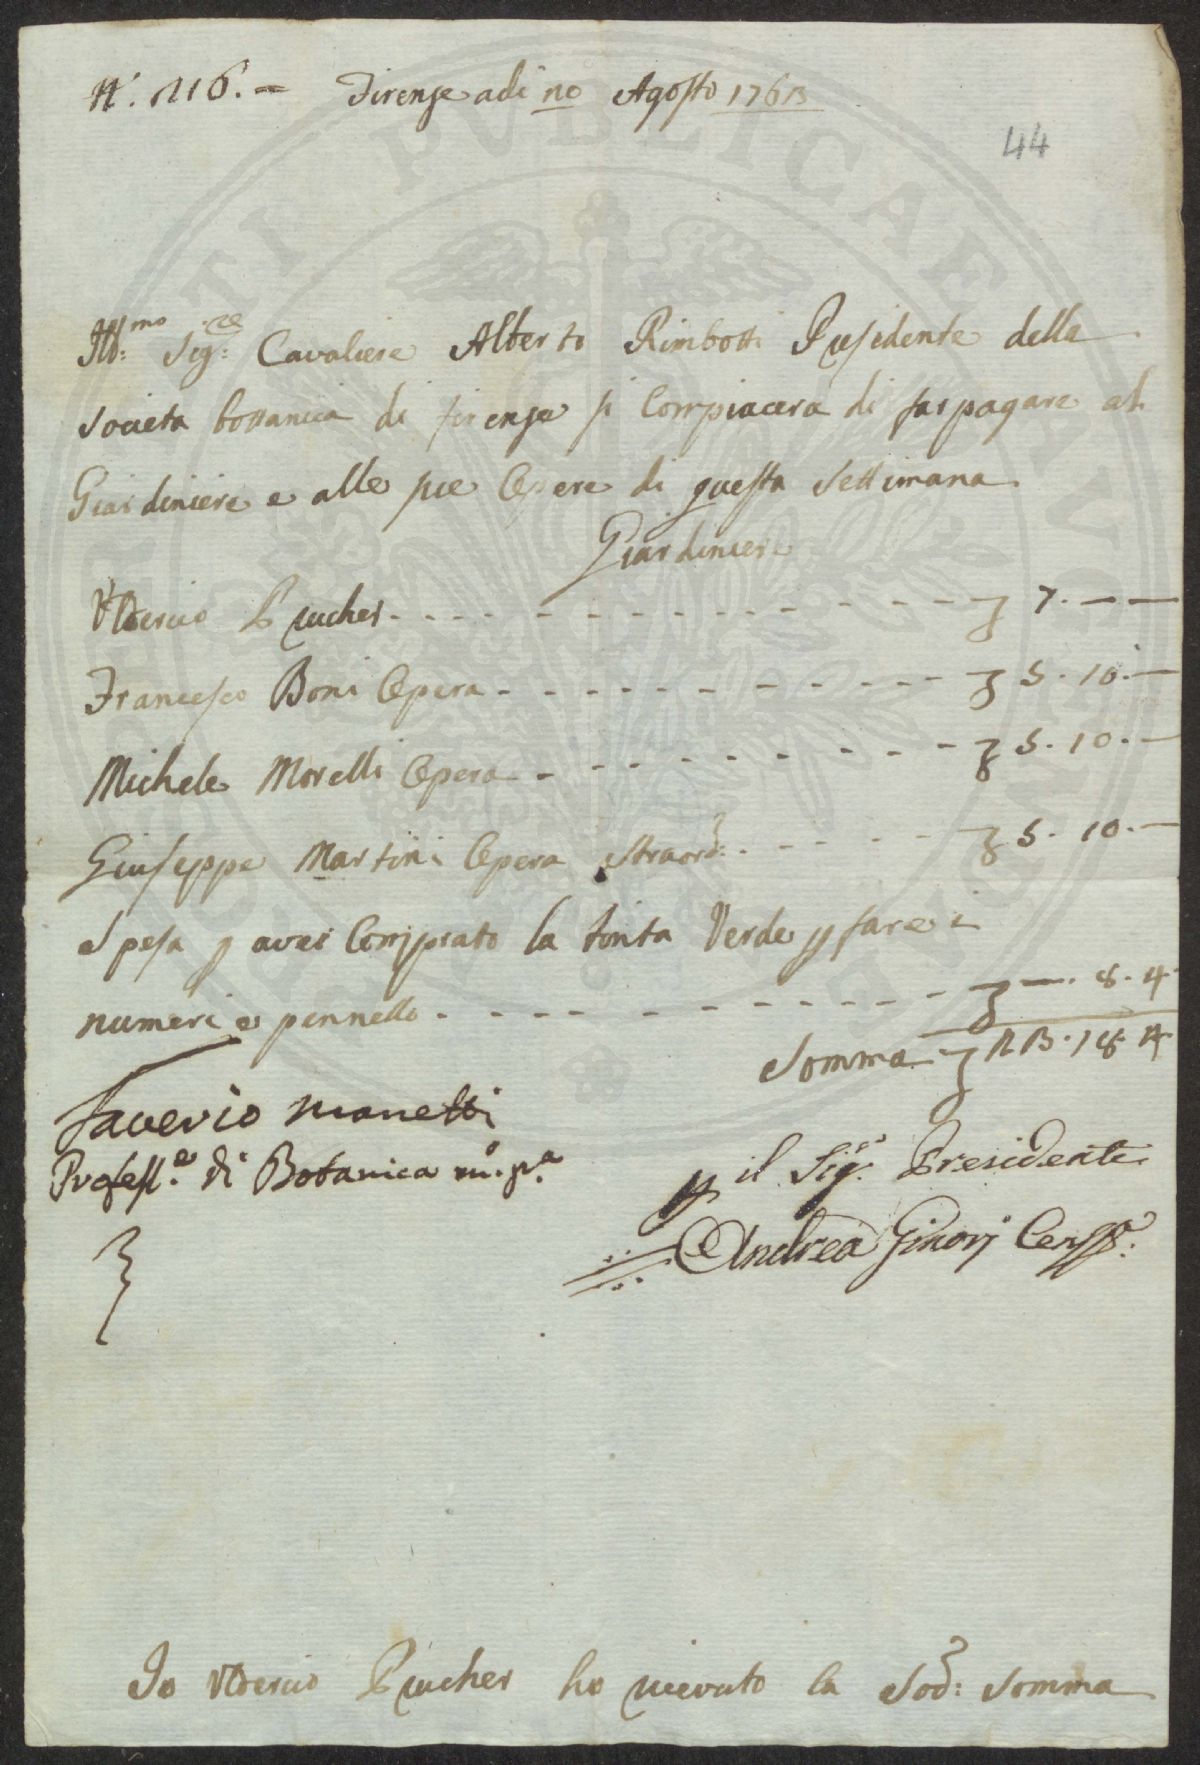 N.° 216. = Firenze adi 20 Agosto 1763
44
Ill:mo Sig:re Cavaliere Alberto Rimbotti Presidente della
Societa bottanica di firenze si Compiacera di far pagare al
Giardiniere e alle sue Opere di questa Settimana
Giardiniere
Ulderico Prucher - - - - - - - - - - - - £ 7. — —
Francesco Boni Opera - - - - - - - - - - £ 5. 10. —
Michele Morelli Opera - - - - - - - - - £ 5. 10. —
Giuseppe Martini Opera straord: - - - - - £ 5. 10. —
Spesa p aver Comprato la tinta Verde p fare i
numeri e pennello - - - - - - - - - - - £ —. 8. 4
Somma £ 23. 18. 4
Saverio Manetti
Profess.e di Botanica m.o p.a
p il Sig.re Presidente
Andrea Ginori Cens.e
Io Ulderico Prucher ho ricevuto la Sod: Somma